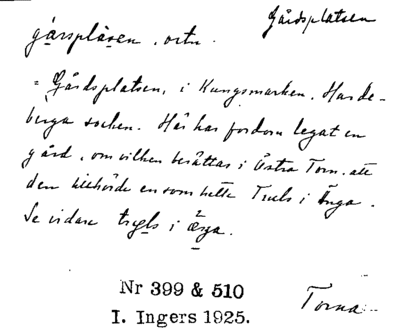 Gårdsplatsen
gårsplásen, ortn.
= Gårdsplatsen, i Kungsmarken, Harde-
berga socken. Här har fordom legat en
gård, om vilken berättas i Östra Torn, att
den tillhörde en som hette Truls i Änga.
Se vidare trɥls i ærɟa.
Nr 399 & 510
I. Ingers 1925.
Torna